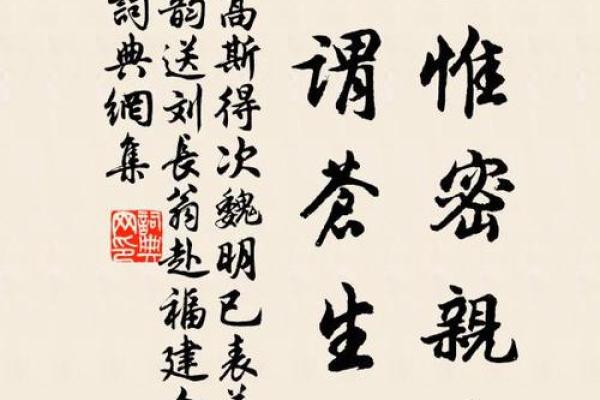 惟密親
謂蒼生
高斯得次魏明已表
韵送刘長翁赴福建
詞典網集
詞典
网印